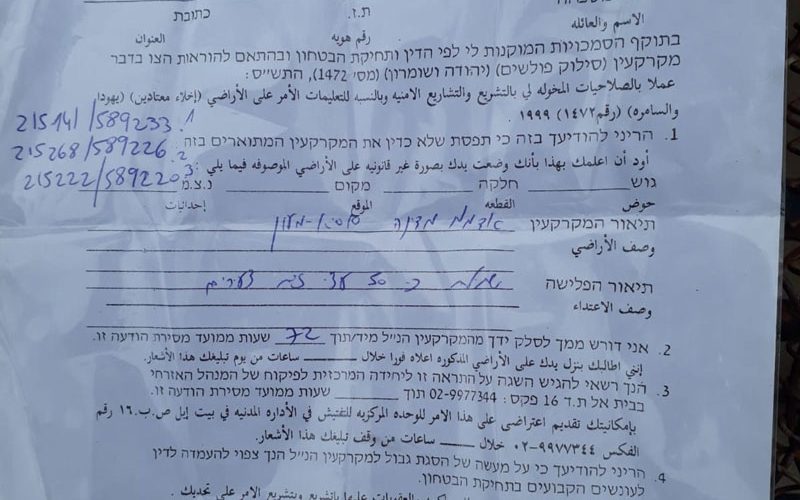 ת.ז. כתובת
الاسم والعائله رقم هويه العنوان
בתוקף הסמכויות המוקנות לי לפי הדין ותחיקת הבטחון ובהתאם להוראות הצו בדבר
מקרקעין (סילוק פולשים) (יהודה ושומרון) (מס' 1472), התש"ס:
عملا بالصلاحيات المخوله لي بالتشريع والتشاريع الامنيه وبالنسبه للتعليمات الأمر على الأراضي (إخلاء معتادين) (يهودا
والسامره) (رقم ١٤٧٢) ١٩٩٩
1. 215141/589233
2. 215268/589226
3. 215222/589220
1. הריני להודיעך בזה כי תפסת שלא כדין את המקרקעין המתוארים בזה
أود أن اعلمك بهذا بأنك وضعت يدك بصورة غير قانونيه على الأراضي الموصوفه فيما يلي
גוש חלקה מקום נ.צ.מ
حوض القطعه الموقع إحداثيات
תיאור המקרקעין אדמת מדינה סוסיא-מעון
وصف الأراضي
תיאור הפלישה נטיעת כ 50 עצי זית צעירים
وصف الاعتداء
2. אני דורש ממך לסלק ידך מהמקרקעין הנ"ל מיד/תוך 72 שעות ממועד מסירת הודעה זו.
إنني اطالبك بنزل يدك على الأراضي المذكوره اعلاه فورا خلال ساعات من يوم تبليغك هذا الأشعار.
3. הנך רשאי להגיש השגה על התראה זו ליחידה המרכזית לפיקוח של המנהל האזרחי
בבית אל ת.ד 16 פקס: 02-9977344 תוך שעות ממועד מסירת הודעה זו.
بإمكانيتك تقديم اعتراضى على هذا الامر للوحده المركزيه للتفتيش في الأداره المدنيه في بيت إيل ص.ب.١٦ رقم
الفكس ٩٩٧٧٣٤٤-٠٢ خلال ساعات من وقف تبليغك هذا الأشعار.
4. הריני להודיעך כי על מעשה של הסגת גבול למקרקעין הנ"ל הנך צפוי להעמדה לדין
לעונשים הקבועים בתחיקת הבטחון.